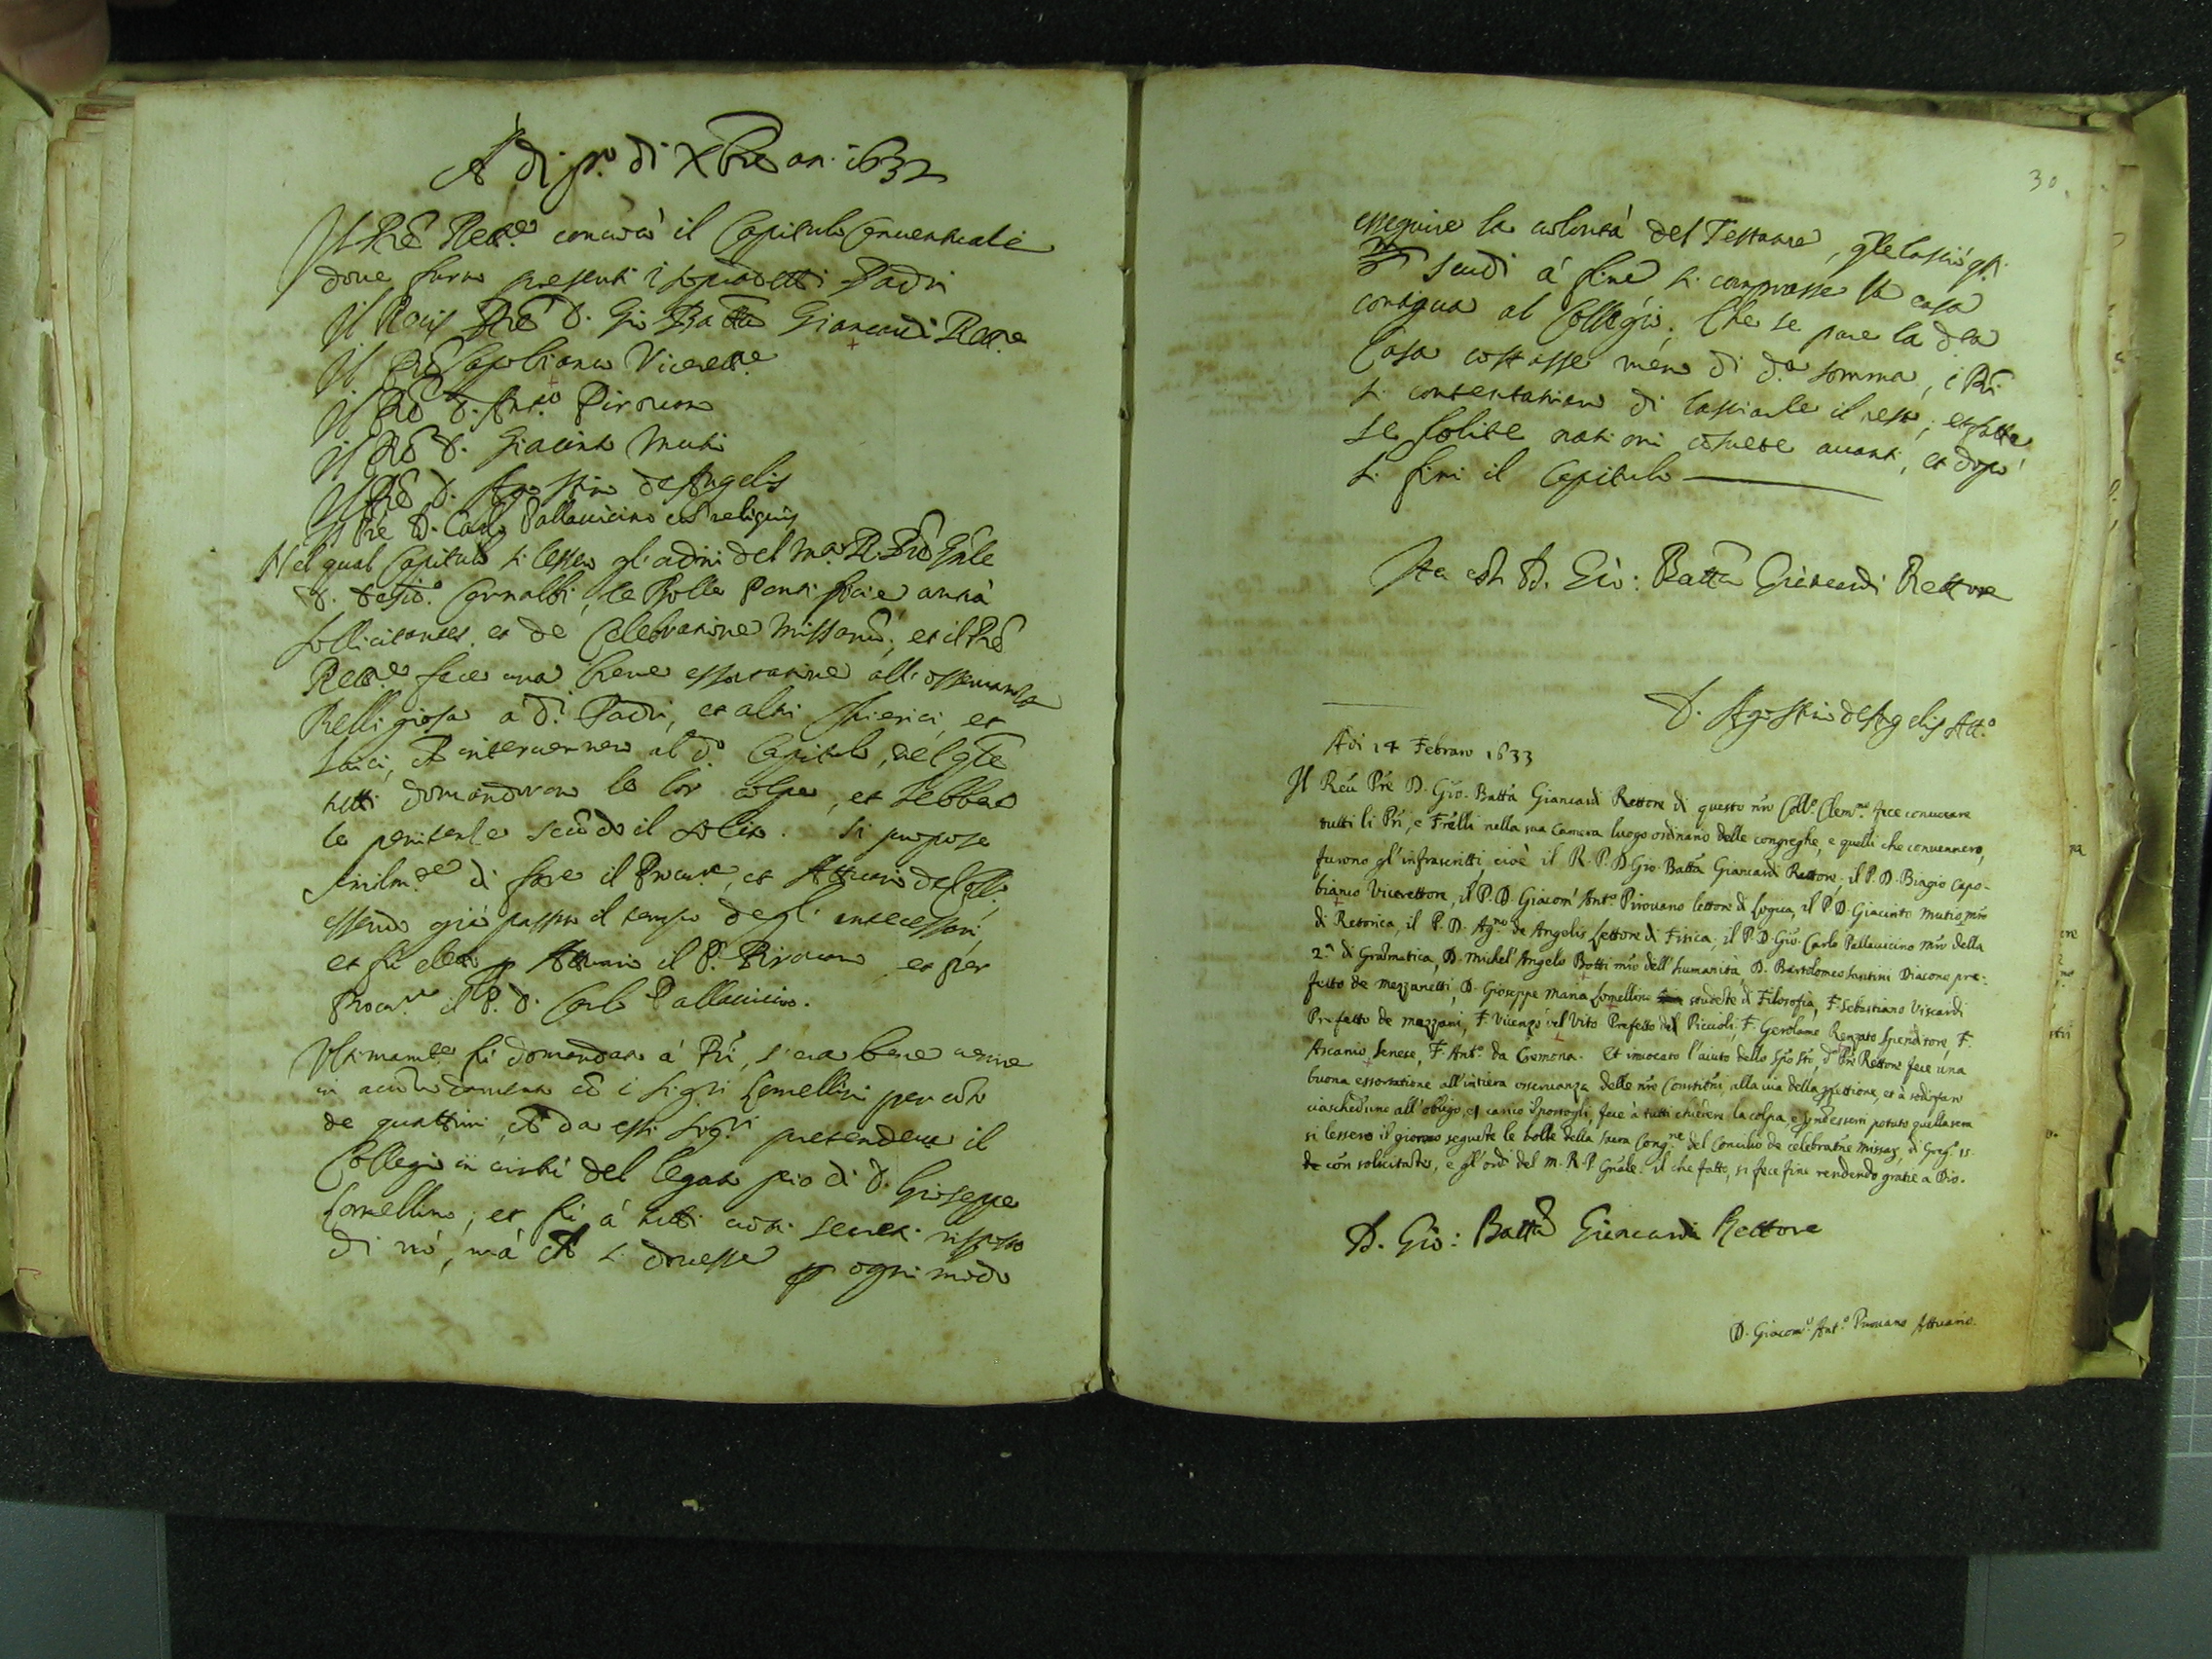 A dì pº. di Xbre an. 1632
Il Prê Rettre convocò il Capitulo Conventuale
dove furno presenti i sopradetti Padri
Il Prê D. Gio Batta Giancardi Rettre
Il Prê Capobianco Vicerettre
Il Prê D. Antº Pirovano
Il Prê D. Giacinto Mutio
Il Prê D. Agostino de Angelis
Il Pre D. Carlo Pallavicino cũ reliquis
Nel qual Capitulo si lessero gl'ordini del Mº. R. Prê Gñle
D. Desidº. Cornalbi, le Bolle Pontificie contrà
sollicitantes, et de Celebratione Missarũ; et il Prê
Rettre fece una breve essortatione all'osservanza
Relligiosa à di. Padri, et altri Chierici, et
Laici, ch intervennero al dº. Capitulo, nel qle
tutti domandorono la lor colpa, et hebbero
la penitenza secũdo il solito. Si propose
similmte di fare il Procurre, et Attuario del Collº.
essendo già passato il tempo degl'antecessori,
et fù eletto p Attuario il P. Pirovano et per
Procurre il P. D. Carlo Pallavicino.
Ultimamte fù domandato à Pri, s'era bene venire
in accommodamento cõ i Sigri Lomellini per conto
de quattrini, ch da essi Sigri pretendeva il
Collegio in virtù del legato pio di D. Gioseppe
Lomellino; et fù à tutti voti secreti risposto
di nò, mà ch si dovesse p ogni modo
30.
esseguire la volontà del Testatore, qle lasciò qsti
scudi à fine si comprasse la casa
contigua al Collegio. Che se pure la dta
Casa costasse meno di dª somma, i Pri
si contentariano di lasciarle il resto; et fatte
le solite orationi consuete avanti, et dopò
si finì il Capitulo
Ita est D. Gio: Batta Giancardi Rettore
D. Agostino de Angelis Attº
Adi 14 Febraro 1633
Il Reu Pre D. Gio. Batta Giancardi Rettore di questo nro Collº. Clemno fece convocare
tutti li Pri, e Frelli nella sua Camera luogo ordinario delle congreghe, e quelli che convennero,
furono gl'infrascritti cioè il R. P. D. Gio Batta Giancardi Rettore, il P. D. Biagio Capo-
bianco Vicerettore, il P. D. Giacom' Antº. Pirovano lettore di Logica, il P. D. Giacinto Mutio mro
di Retorica, il P. D. Agno de Angelis Lettore di Fisica; il P. D. Gio. Carlo Pallavicino mro della
2ª di Gramatica, D. Michel'Angelo Botti mro dell'humanità D. Bartolomeo Santini Diacono pre-
fetto de mezzanetti, D. Gioseppe Maria Lomellino studete di Filosofia, F. Sebastiano Viscardi
Prefetto de mezzani, F. Vicenzo del Vito Prefetto del Piccioli, F. Gerolamo Renzato Spenditore, F.
Ascanio Senese, F. Antº. da Cremona. Et invocato l'aiuto dello Spo Sto, dº Pre Rettore fece una
buona essortatione all'intiera osservanza delle nre Constitni, alla via della pfettione, et à sodisfare
ciascheduno all'obligo, et carico sportogli, fece à tutti chiedere la colpa, e no essersi potuto quella sera
si lessero il giorno seguete le bolle della sacra Congne del Concilio de celebratne missaz, di Gregº. 15.
de con solicitates, e gl'ordi del M. R. P. Gnale. Il che fatto, si fece fine rendendo gratie a Dio.
D. Gio: Batta Giancardi Rettore
D. Giacomº Antº. Pirovano Attuario.